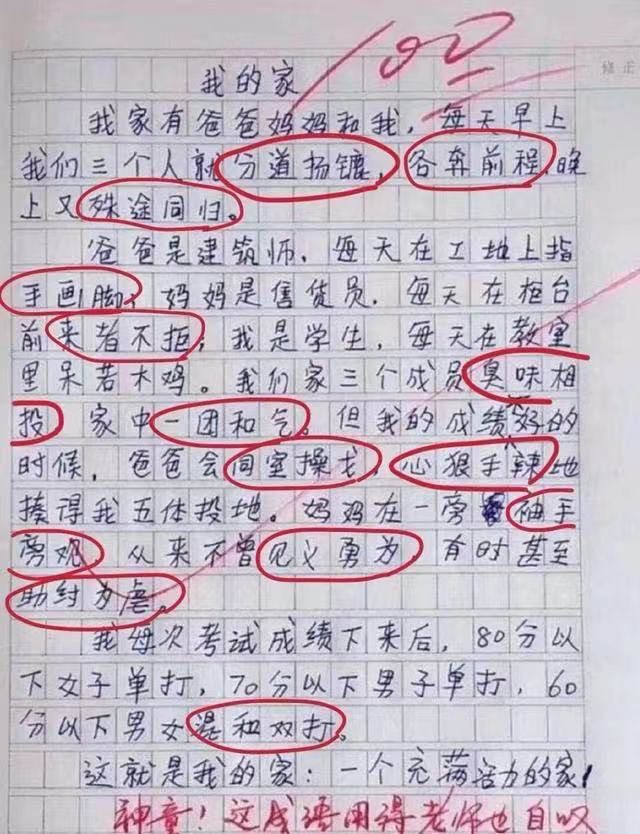 100
修正
我的家
我家有爸爸妈妈和我，每天早上
我们三个人就分道扬镳，各奔前程，晚
上又殊途同归。
爸爸是建筑师，每天在工地上指
手画脚；妈妈是售货员，每天在柜台
前来者不拒；我是学生，每天在教室
里呆若木鸡。我们家三个成员臭味相
投，家中一团和气。但我的成绩不好的
时候，爸爸会同室操戈，心狠手辣地
揍得我五体投地。妈妈在一旁袖手
旁观，从来不曾见义勇为，有时甚至
助纣为虐。
我每次考试成绩下来后，80分以
下女子单打，70分以下男子单打，60
分以下男女混和双打。
这就是我的家：一个充满活力的家！
神童！这成语用得老师也自叹